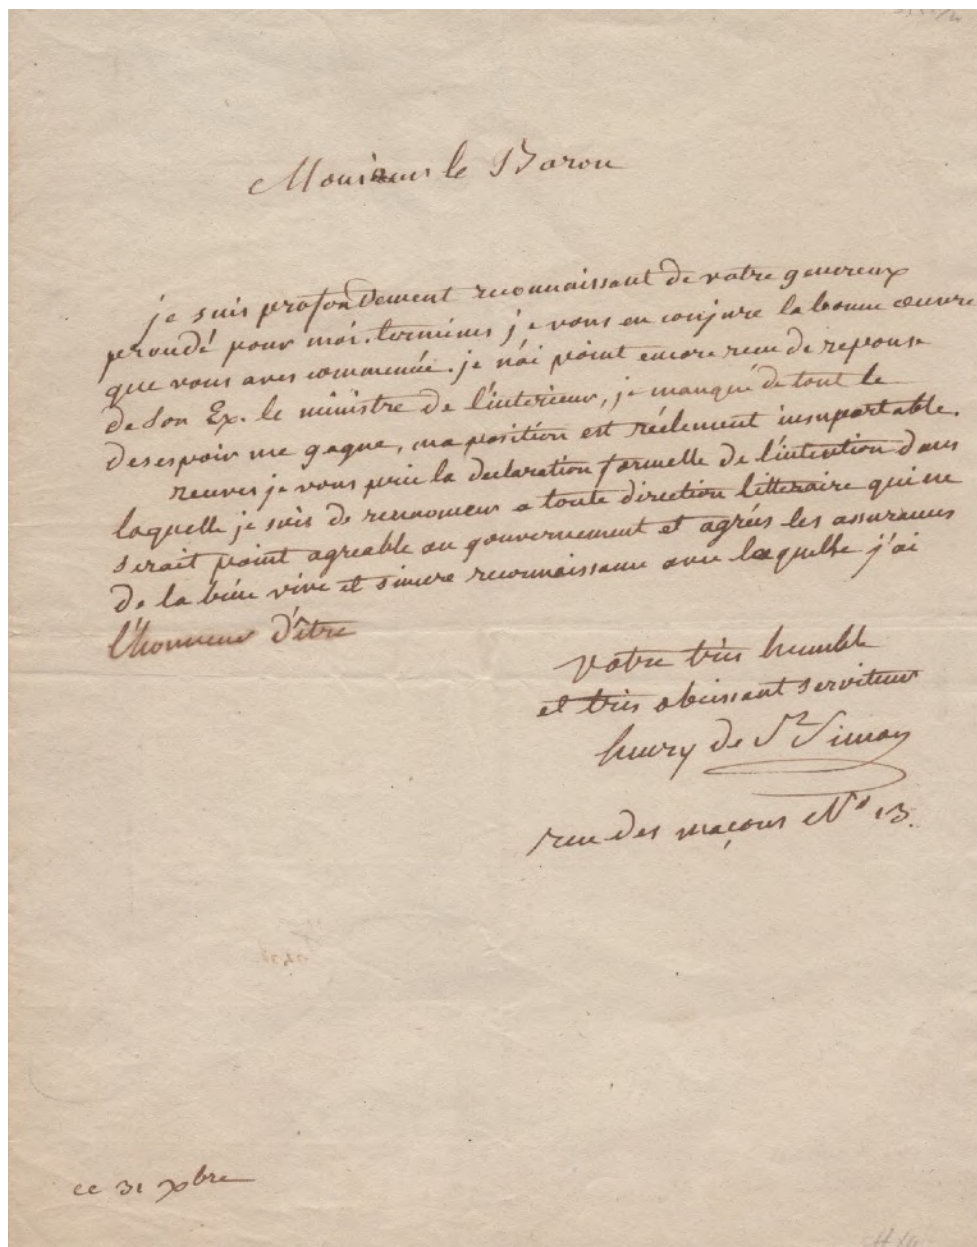 Monsieur le Baron
je suis profondement reconnaissant de votre genereux
procédé pour moi. terminés je vous en conjure la bonne œuvre
que vous aves commencée. je n'ai point encore recu de reponse
de son Ex. le ministre de l'interieur, je manque de tout le
desespoir me gagne, ma position est réelement insuportable.
recevés je vous prie la declaration formelle de l'intention dans
laquelle je suis de renoncer a toute direction litteraire qui ne
serait point agreable au gouvernement et agréés les assurances
de la bien vive et sincere reconnaissance avec laquelle j'ai
l'honneur d'être
votre très humble
et très obeissant serviteur
henry de St Simon
rue des maçons N° 13.
ce 31 xbre